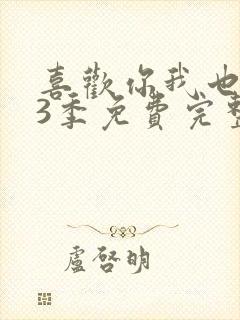 喜歡你我也
3季免費完整
盧啓明